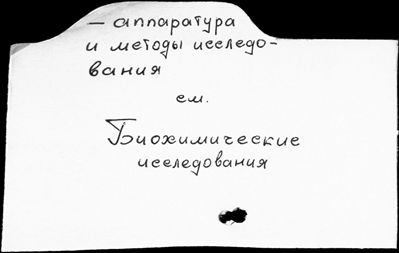 — аппаратура
и методы исследо-
вания
см.
Биохимические
исследования